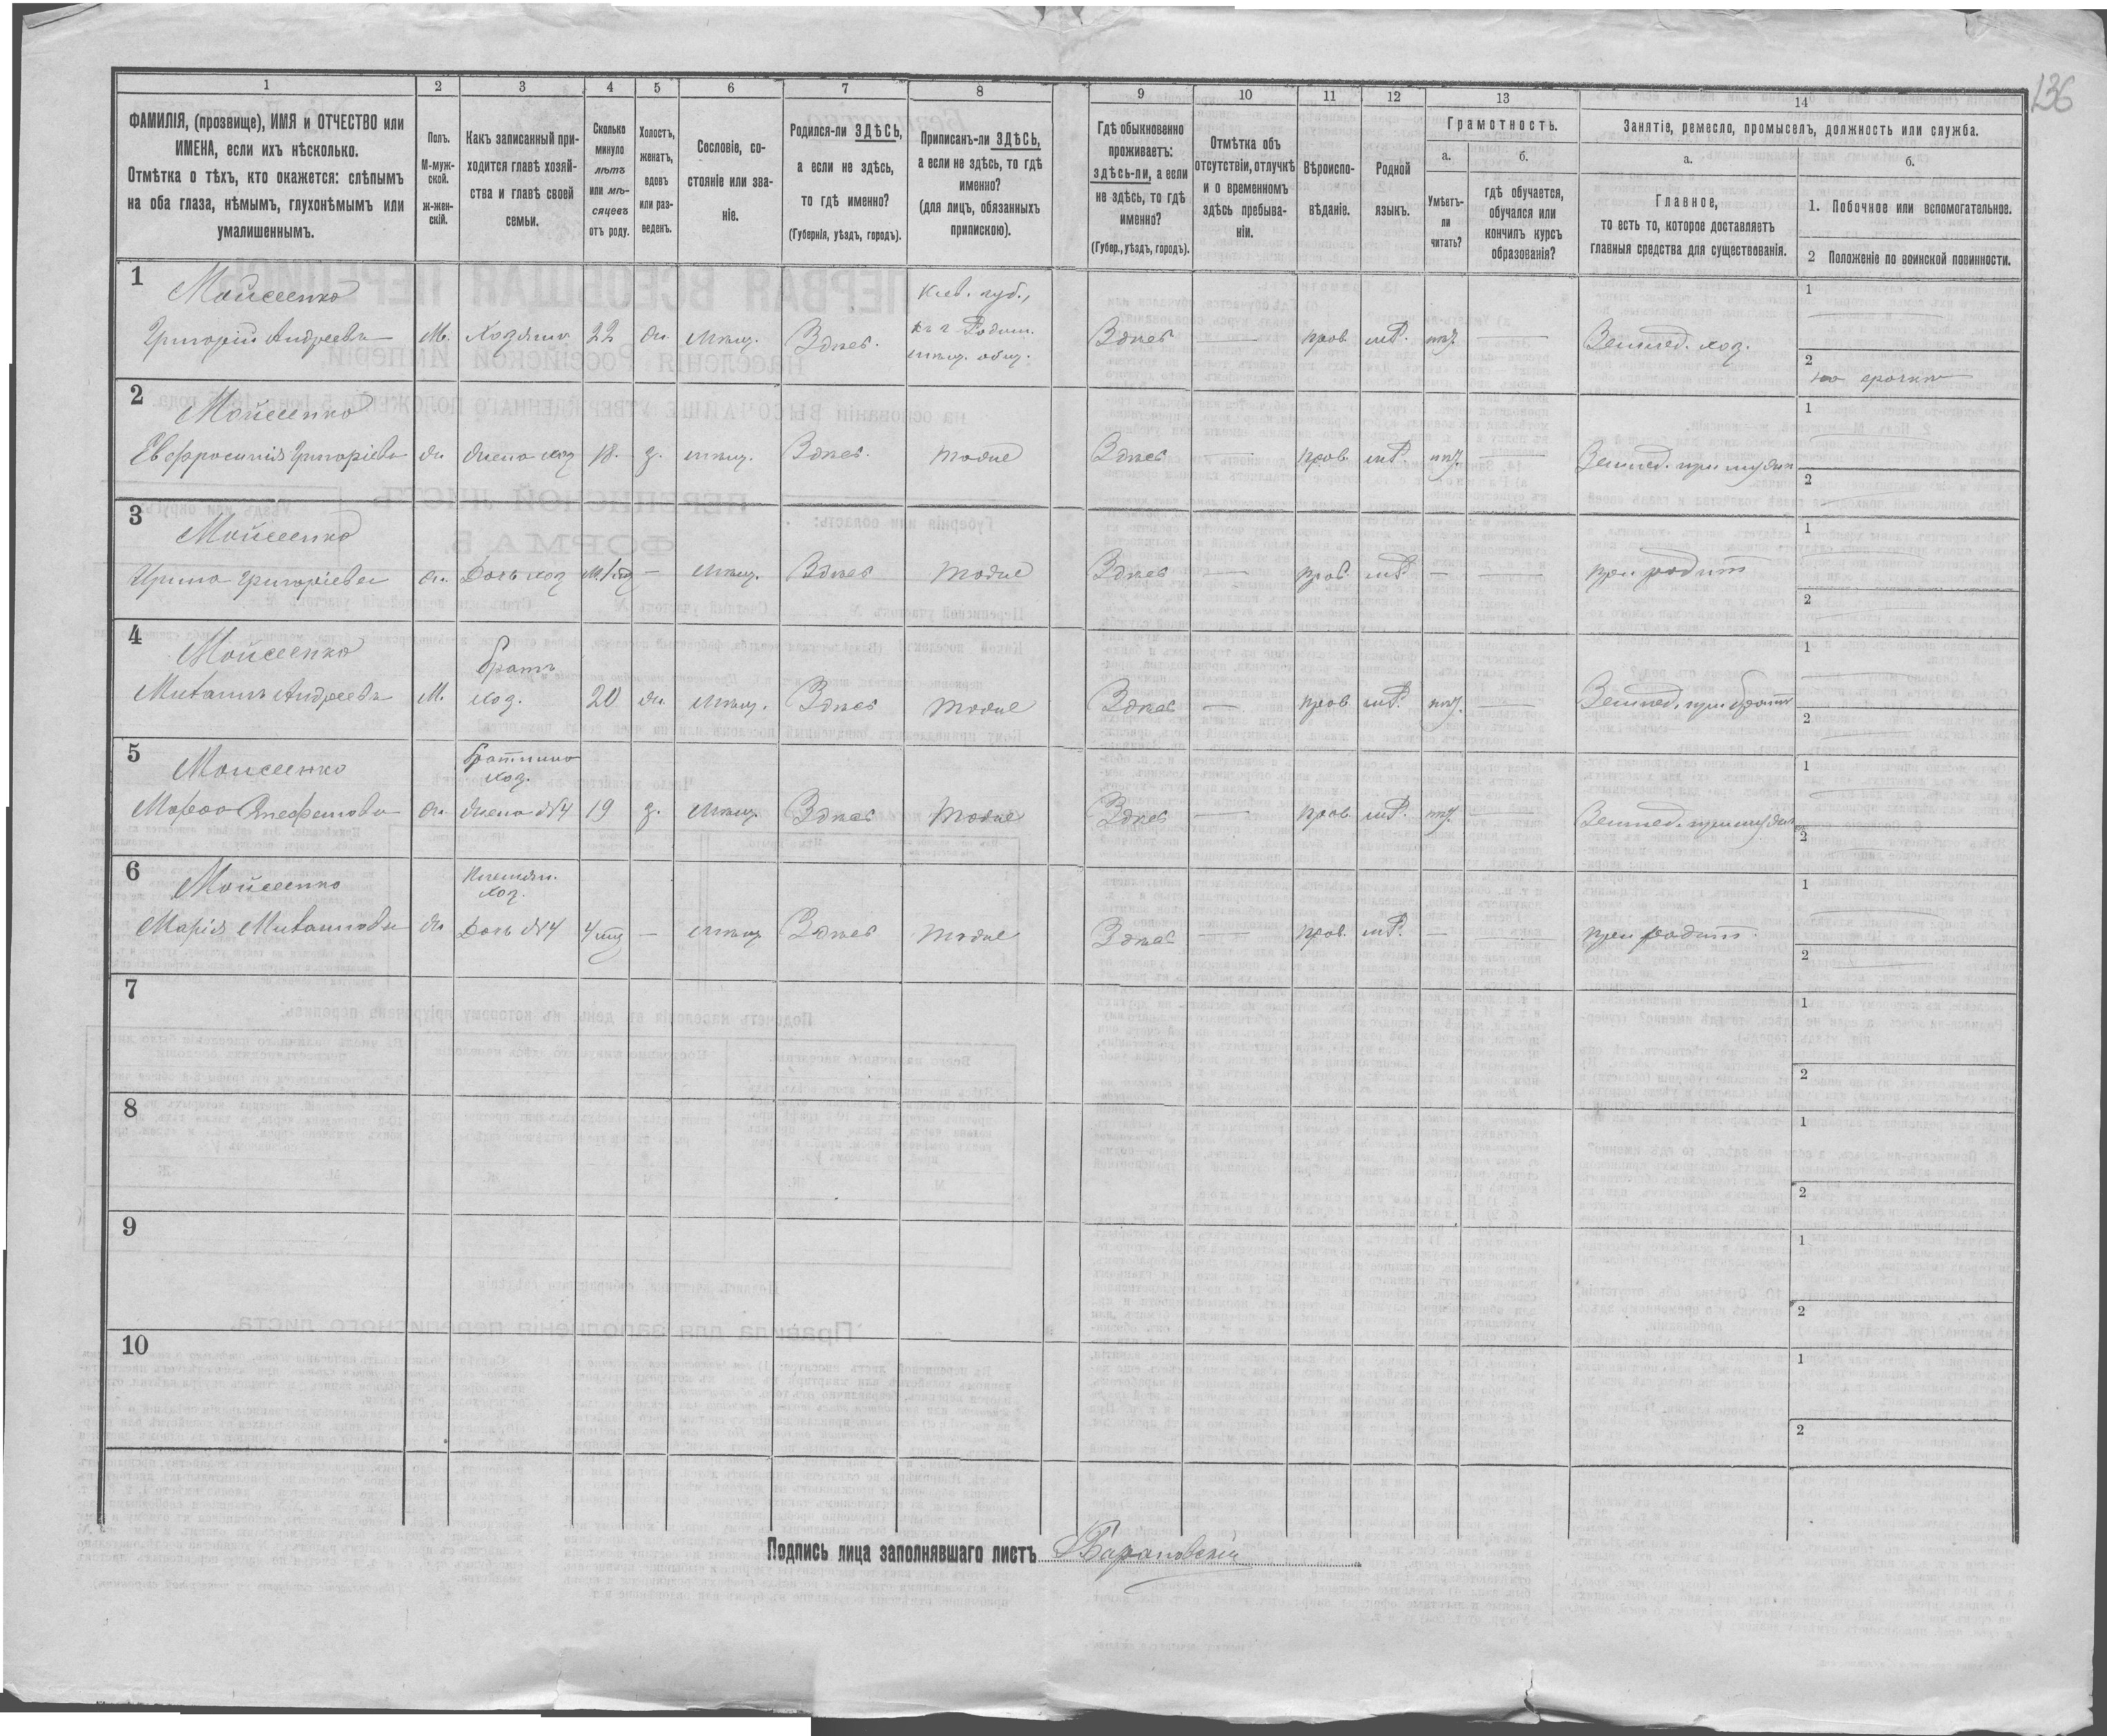 136
1 2 3 4 5 6 7 8 9 10 11 12 13 14
ФАМИЛІЯ, (прозвище), ИМЯ и ОТЧЕСТВО или
ИМЕНА, если ихъ нѣсколько.
Отмѣтка о тѣхъ, кто окажется: слѣпымъ
на оба глаза, нѣмымъ, глухонѣмымъ или
умалишеннымъ.
Полъ.
М-муж-
ской.
ж-жен-
скій.
Какъ записанный при-
ходится главѣ хозяй-
ства и главѣ своей
семьи.
Сколько
минуло
лѣтъ
или мѣ-
сяцевъ
отъ роду.
Холостъ,
женатъ,
вдовъ
или раз-
веденъ.
Сословіе, со-
стояніе или зва-
ніе.
Родился-ли ЗДѢСЬ,
а если не здѣсь,
то гдѣ именно?
(Губернія, уѣздъ, городъ).
Приписанъ-ли ЗДѢСЬ,
а если не здѣсь, то гдѣ
именно?
(для лицъ, обязанныхъ
припискою).
Гдѣ обыкновенно
проживаетъ:
здѣсь-ли, а если
не здѣсь, то гдѣ
именно?
(Губер., уѣздъ, городъ).
Отмѣтка объ
отсутствіи, отлучкѣ
и о временномъ
здѣсь пребыва-
ніи.
Вѣроиспо-
вѣданіе.
Родной
языкъ.
Грамотность.
а.
Умѣетъ-
ли
читать?
б.
гдѣ обучается,
обучался или
кончилъ курсъ
образованія?
Занятіе, ремесло, промыселъ, должность или служба.
а.
Главное,
то есть то, которое доставляетъ
главныя средства для существованія.
б.
1. Побочное или вспомогательное.
2 Положеніе по воинской повинности.
1
Мойсеенко
Григорій Андреевъ
М.
Хозяинъ
22
ж.
мѣщ.
Здѣсь.
Кіев. губ.,
мѣщ. общ.
Здѣсь
прав.
Землед. хоз.
1
2
2
Мойсеенко
Евфросинія Григоріева
ж
жена хоз
18.
з.
мѣщ.
Здѣсь.
тоже
Здѣсь
прав.
Землед. при муж
1
2
3
Мойсеенко
Ирина Григоріева
ж.
Дочь хоз
—
мѣщ.
Здѣсь
тоже
Здѣсь
прав.
—
при родит
1
2
4
Мойсеенко
Михаилъ Андреевъ
М.
братъ
хоз.
20
ж.
мѣщ.
Здѣсь
тоже
Здѣсь
прав.
Землед. при брат
1
2
5
Моисеенко
ж.
хоз.
жена №4
19
з.
мѣщ.
Здѣсь
тоже
Здѣсь
прав.
Землед. при муж
1
2
6
Мойсеенко
Марія Михаилова
ж
Племян.
хоз.
Дочь №4
—
мѣщ
Здѣсь
тоже
Здѣсь
прав.
—
при родит.
1
2
7
1
2
8
1
2
9
1
2
10
1
2
Подпись лица заполнявшаго листъ Барановскій